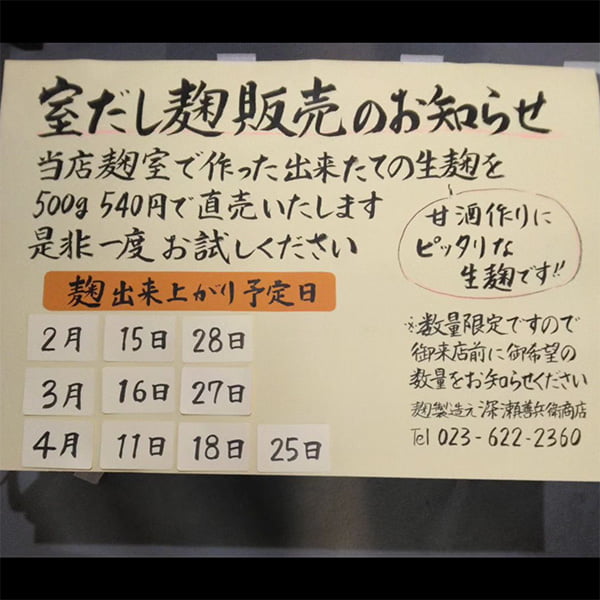 室だし麹販売のお知らせ
当店麹室で作った出来たての生麹を
500g 540円で直売いたします
是非一度 お試しください
甘酒作りに
ピッタリな
生麹です!!
麹出来上がり予定日
2月 15日 28日
3月 16日 27日
4月 11日 18日 25日
※数量限定ですので
御来店前に御希望の
数量をお知らせください
麹製造元 深瀬善兵衛商店
Tel 023-622-2360